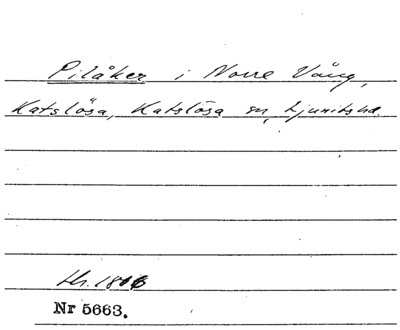 Pilåker i Norre Vång,
Katslösa, Katslösa sn, Ljunits hd.
Lh. 1806
Nr 5663.